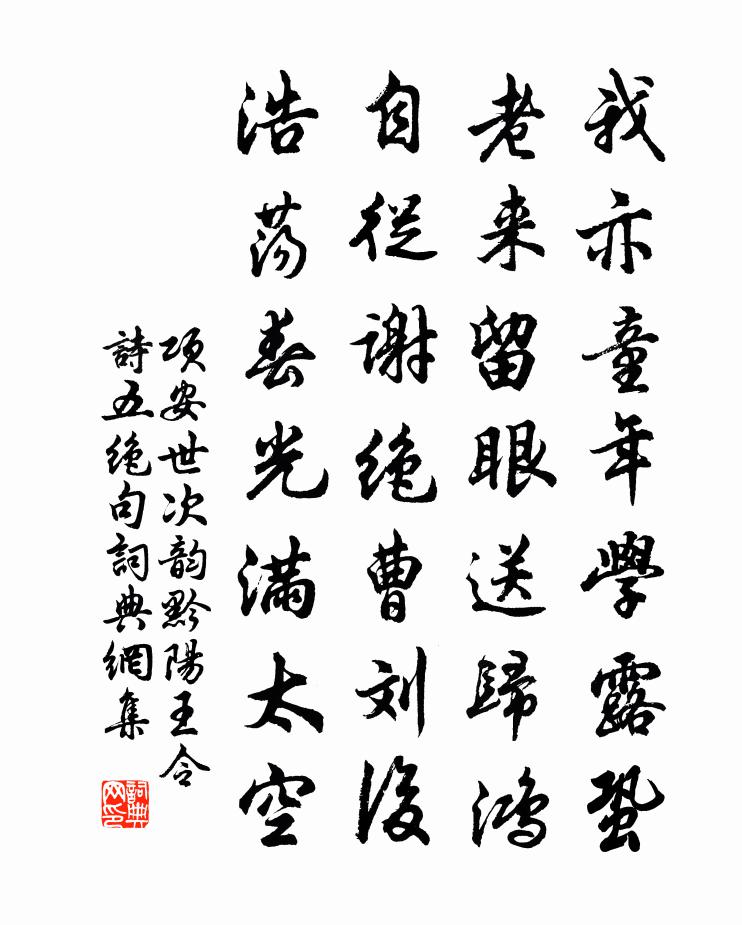 我亦童年學露蛩
老来留眼送歸鴻
自從謝絶曹刘後
浩荡春光满太空
項安世次韵黔陽王令
詩五絶句詞典網集
詞典
网印